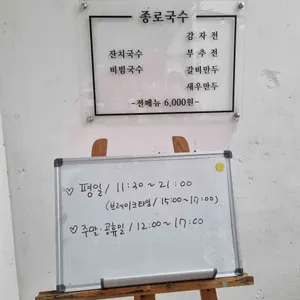 종로국수
감자전
잔치국수 부추전
비빔국수 갈비만두
새우만두
-전메뉴 6,000원-
♡ 평일 / 11:30~21:00
(브레이크타임 / 15:00~17:00)
♡ 주말·공휴일 / 12:00~17:00